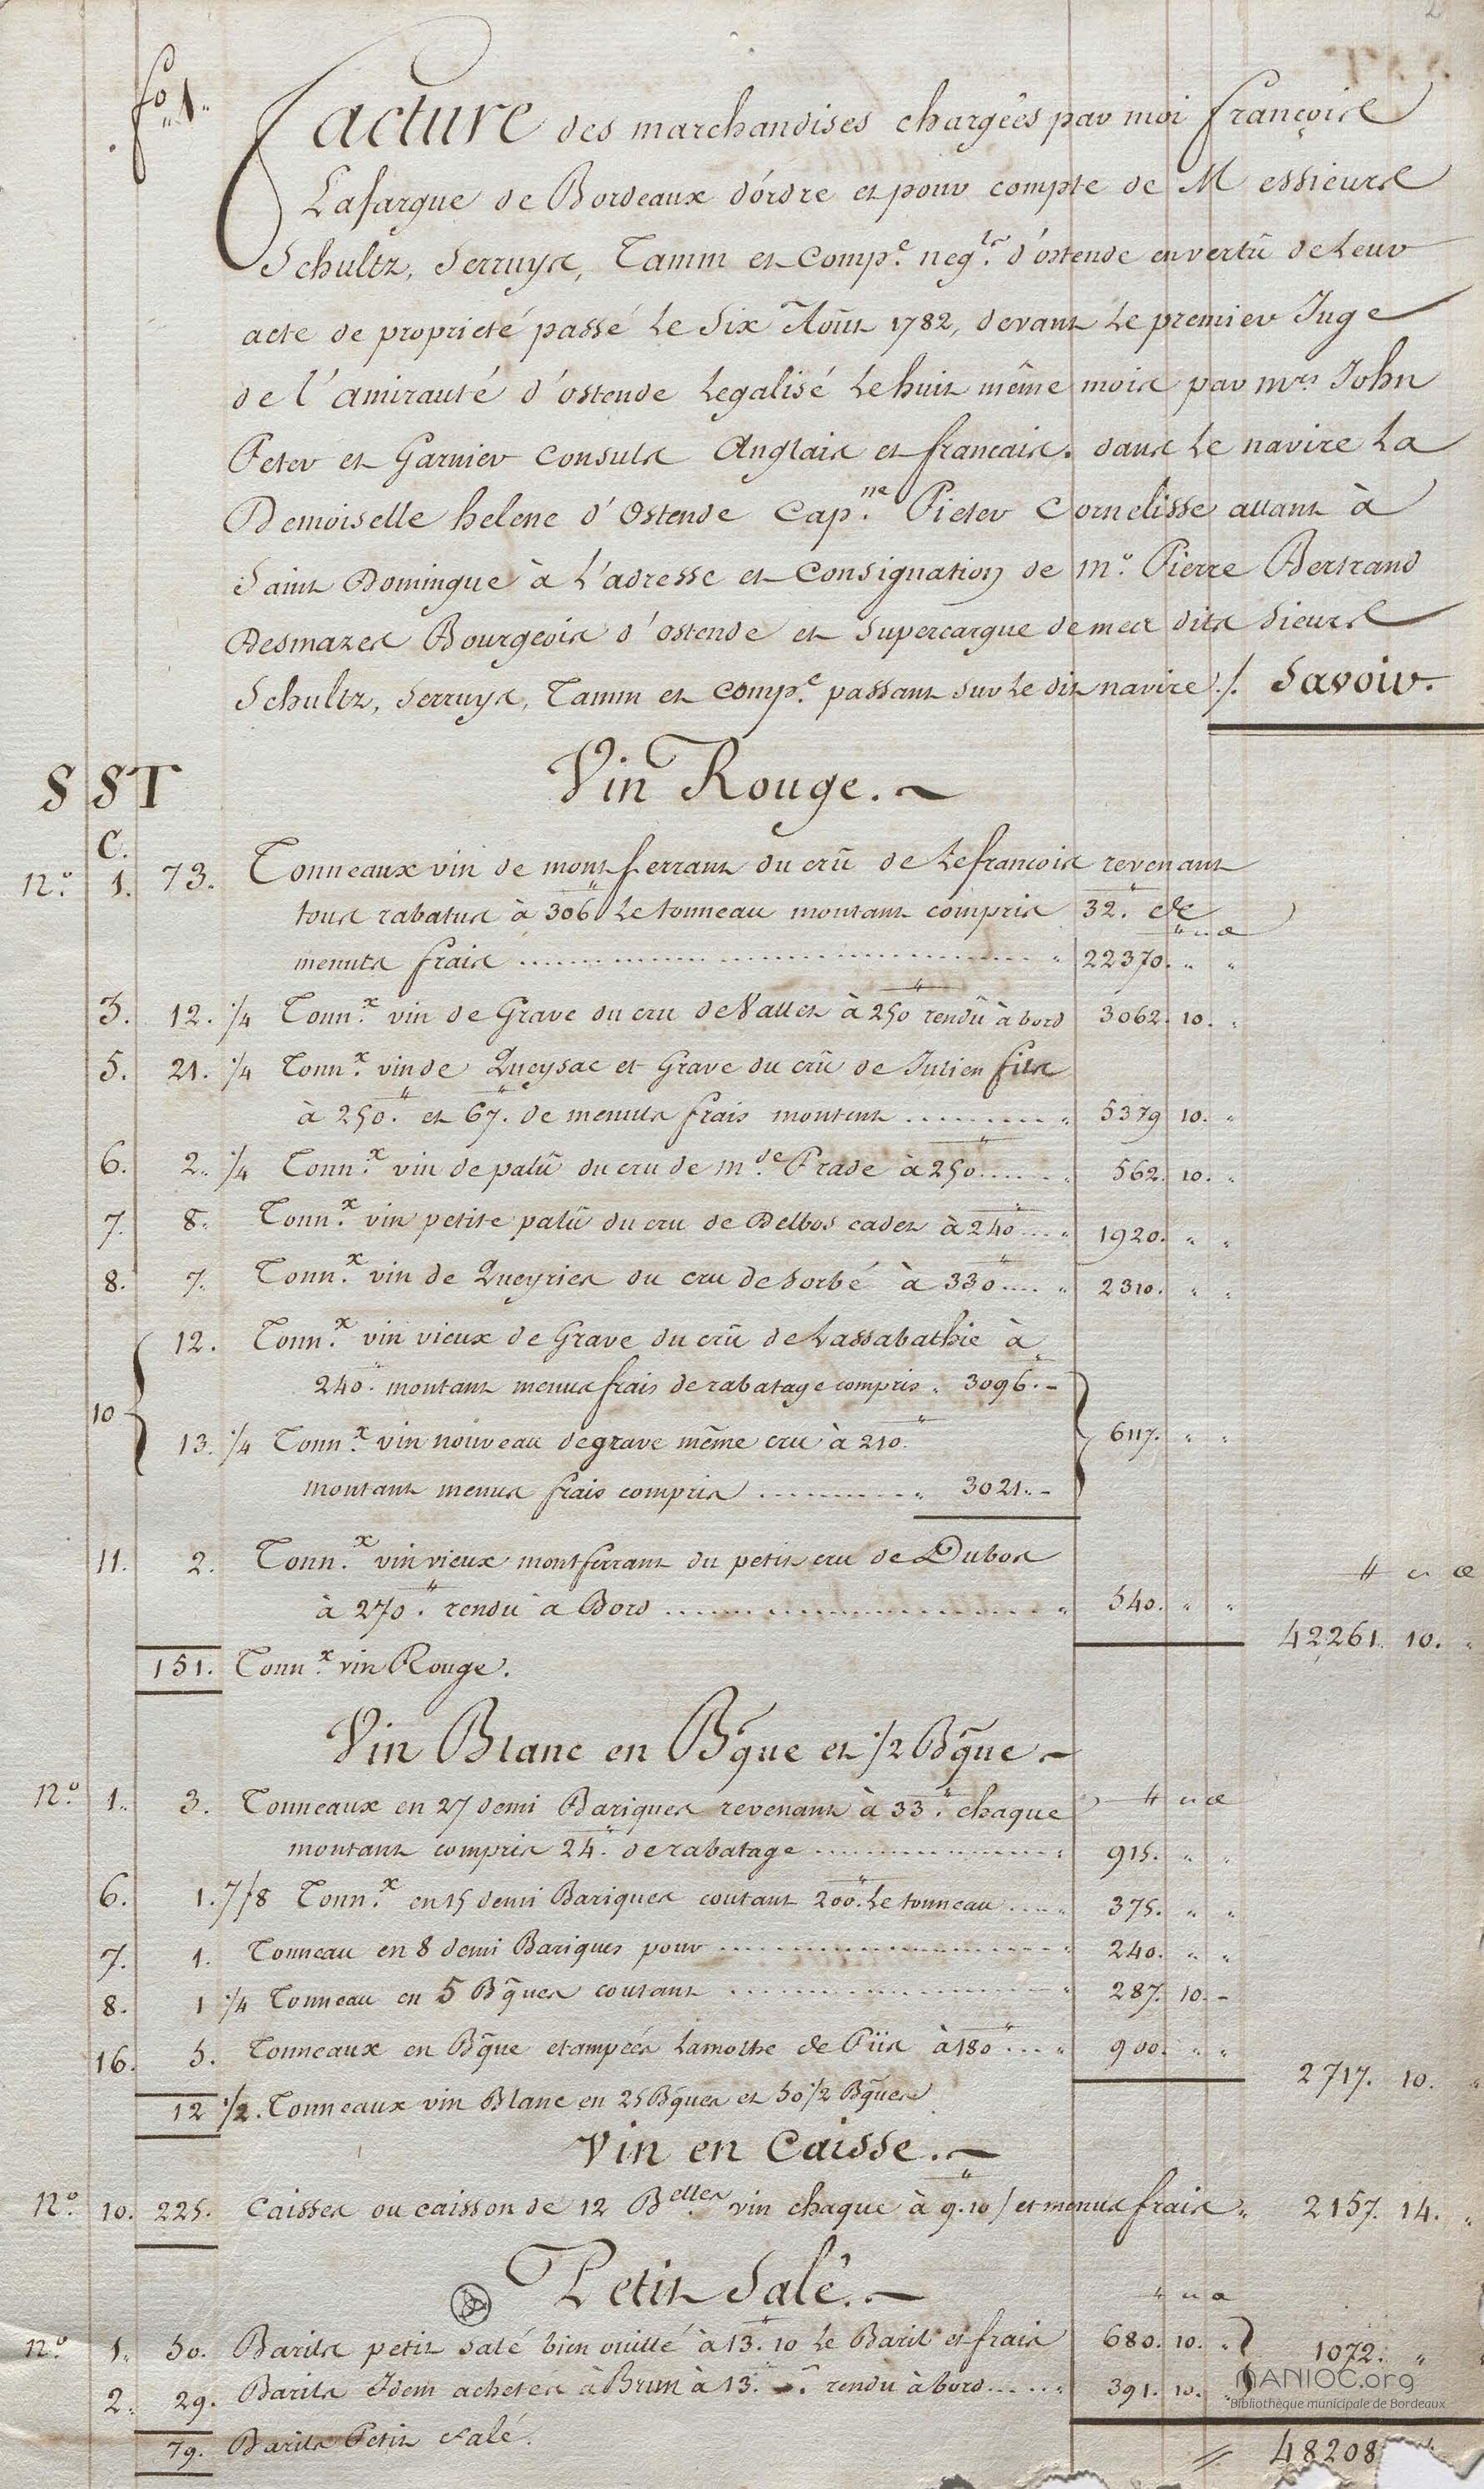 2
fo. 1.
Facture des marchandises chargées par moi françois
Lafargue de Bordeaux d'ordre et pour compte de Messieurs
Schultz, Serruys, Tamm et Comp.e neg.ts d'ostende en vertû de Leur
acte de proprieté passé Le Six Août 1782, devant Le premier Juge
de l'amirauté d'ostende Legalisé Le huit même mois par mrs John
Peter et Garnier Consuls Anglais et francais. dans Le navire La
Demoiselle helene d'Ostende Cap.ne Pieter Cornelisse allant à
Saint Domingue à L'adresse et Consignation de m.r Pierre Bertrand
Desmazes Bourgeois d'ostende et Supercargue de mes dits Sieurs
Schultz, Serruys, Tamm et Comp.e passant sur Le dit navire ./. Savoir.
Vin Rouge.
S S T
C.
N.o 1. 73. Tonneaux vin de montferrant du crû de Lefrancois revenant
tous rabatus à 306 Le tonneau montant compris 32. de
menuts frais 22370. " "
3. 12. 1/4 Tonn.x vin de Grave du cru de Vallet à 250 rendû à bord 3062. 10. "
5. 21. 1/4 Tonn.x vin de Queysac et Grave du crû de Julien fils
à 250. et 67. de menuts frais montent 5379 10. "
6. 2. 1/4 Tonn.x vin de palû du cru de m.de Prade à 250 562. 10. "
7. 8. Tonn.x vin petite palû du cru de Delbos cadet à 240 1920. " "
8. 7. Tonn.x vin de Queyries du cru de Sorbé à 330 2310. " "
12. Tonn.x vin vieux de Grave du crû de Lassabathie à
240. montant menus frais de rabatage compris. 3096. -
10 13. 1/4 Tonn.x vin nouveau de grave même cru à 210. 6117. " "
montant menus frais compris 3021. -
11. 2. Tonn.x vin vieux montferrant du petit cru de Dubos
à 270. rendu a Bord 540. " "
42261. 10. "
151. Tonn.x vin Rouge.
Vin Blanc en Bque et 1/2 Bque
N.o 1. 3. Tonneaux en 27 demi Bariques revenant à 33. chaque
montant compris 24. de rabatage 915. " "
6. 1. 7/8 Tonn.x en 15 demi Bariques coutant 200. Le tonneau 375. " "
7. 1. Tonneau en 8 demi Bariques pour 240. " "
8. 1 1/4 Tonneau en 5 Bques coutant 287. 10. -
16. 5. Tonneaux en Bque etampés Lamothe de Piis à 180 900. " "
2717. 10. "
12 1/2. Tonneaux vin Blanc en 25 Bques et 50 1/2 Bques
Vin en Caisse.
N.o 10. 225. Caisses ou caisson de 12 Belles vin chaque à 9.10/ et menus frais 2157. 14. "
Petit Salé.
N.o 1. 50. Barils petit salé bien ouillé à 13. 10 Le Baril et frais 680. 10. "
1072. "
2. 29. Barils Idem achetés à Brun à 13. rendu à bord 391. 10. "
79. Barils Petit salé.
48208
MANIOC.org
Bibliothèque municipale de Bordeaux